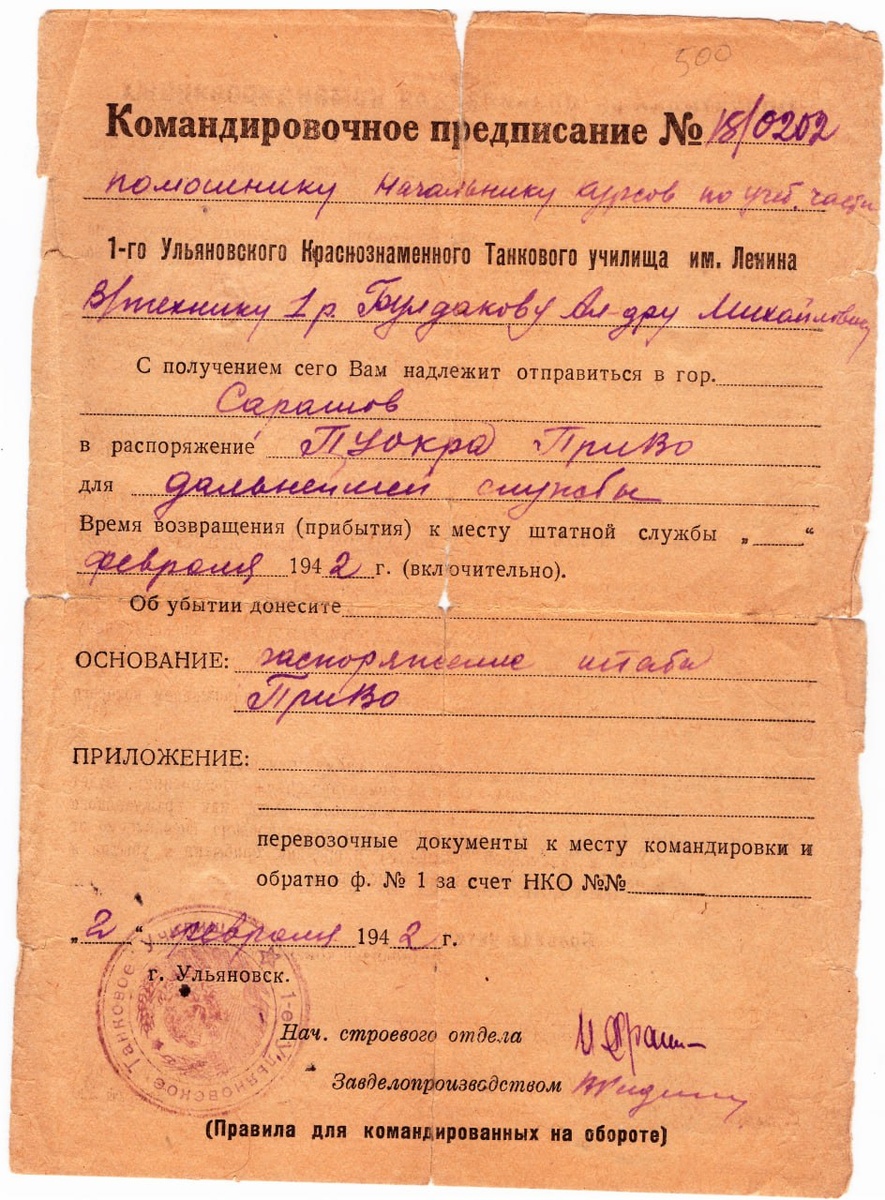 500
Командировочное предписание № 18/0202
помошнику Начальнику курсов по учеб. части
1-го Ульяновского Краснознаменного Танкового училища им. Ленина
В/технику 1 р. Булдакову Ал-дру Михайловичу
С получением сего Вам надлежит отправиться в гор.
Сарашов
в распоряжение ПУокра ПриВо
для дальнейшей службы
Время возвращения (прибытия) к месту штатной службы „ “
февраля 1942 г. (включительно).
Об убытии донесите
ОСНОВАНИЕ: распоряжение штаба
ПриВо
ПРИЛОЖЕНИЕ:
перевозочные документы к месту командировки и
обратно ф. № 1 за счет НКО №№
„2“ февраля 1942 г.
г. Ульяновск.
1-е Ульяновское Танковое Училище
Нач. строевого отдела
Завделопроизводством
(Правила для командированных на обороте)